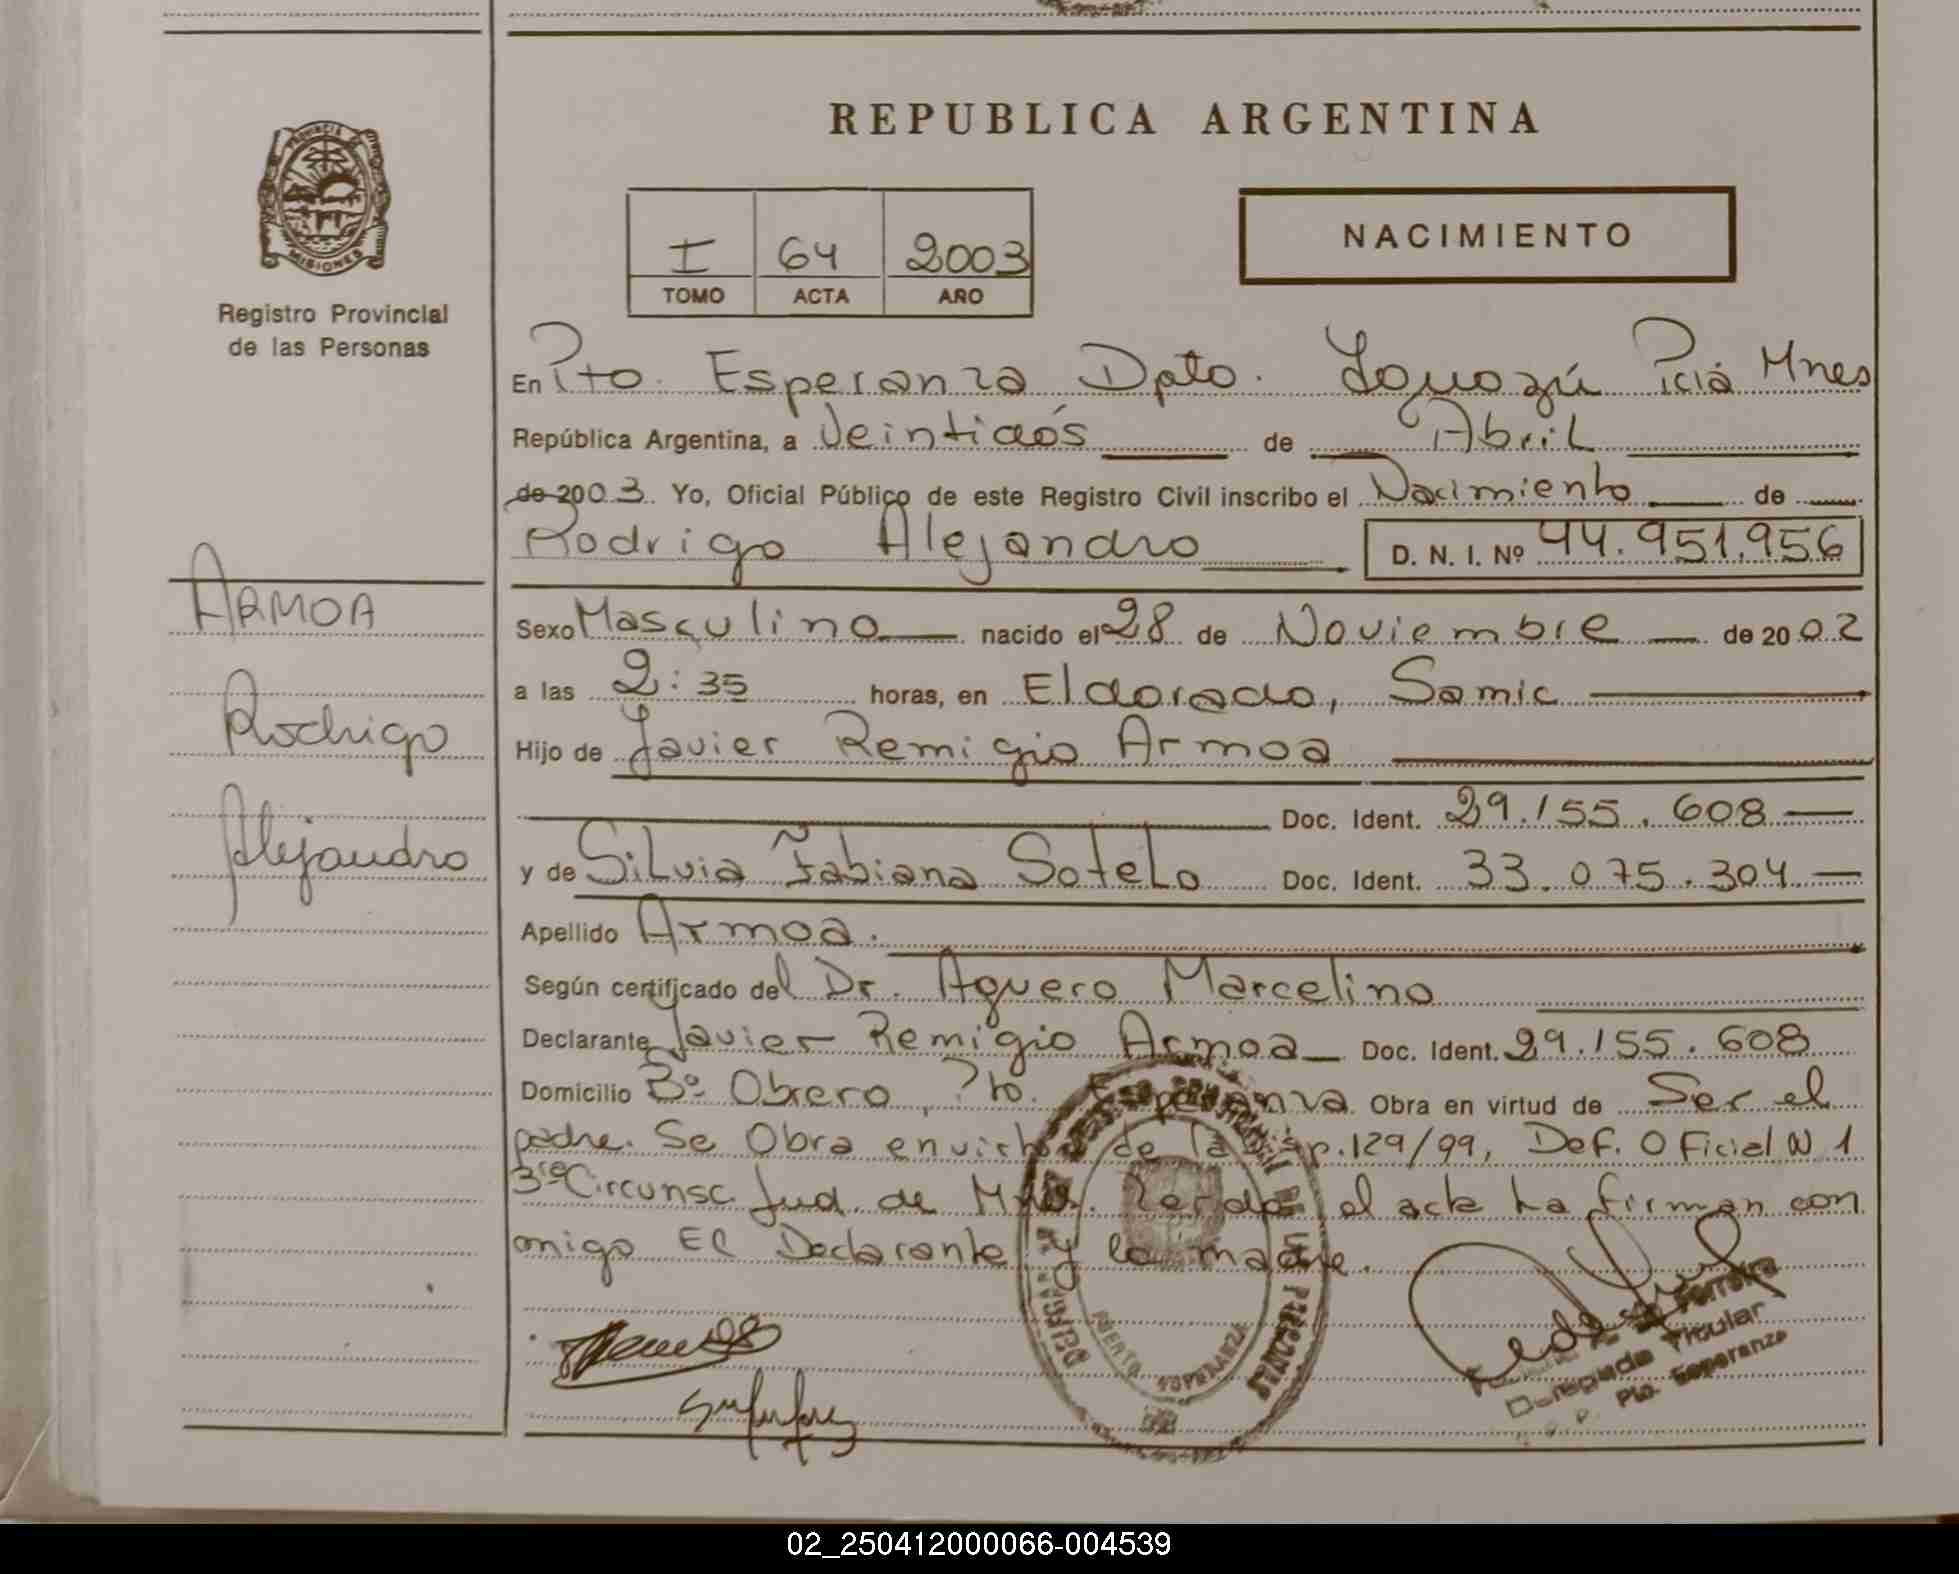 PROVINCIA DE
MISIONES
Registro Provincial
de las Personas
ARMOA
Rodrigo
Alejandro
REPUBLICA ARGENTINA
I 64 2003
TOMO ACTA AÑO
NACIMIENTO
En Pto. Esperanza Dpto. Iguazú Pcia Mnes
República Argentina, a Veintidós de Abril
de 2003. Yo, Oficial Público de este Registro Civil inscribo el Nacimiento de
Rodrigo Alejandro D. N. I. Nº 44.951.956
Sexo Masculino nacido el 28 de Noviembre de 2002
a las 2:35 horas, en Eldorado, Samic
Hijo de Javier Remigio Armoa
Doc. Ident. 29.155.608
y de Silvia Fabiana Sotelo Doc. Ident. 33.075.304
Apellido Armoa.
Según certificado del Dr. Aguero Marcelino
Declarante Javier Remigio Armoa Doc. Ident. 29.155.608
Domicilio Bº Obrero, Pto. Esperanza Obra en virtud de Ser el
padre. Se Obra en virtud de la Disp. 129/99, Def. Oficial N 1
3ra Circunsc. Jud. de Mnes. Leida el acta la firman con
migo El Declarante y la madre.
PUERTO ESPERANZA
Ferreira
Delegada Titular
Pto. Esperanza
02_250412000066-004539